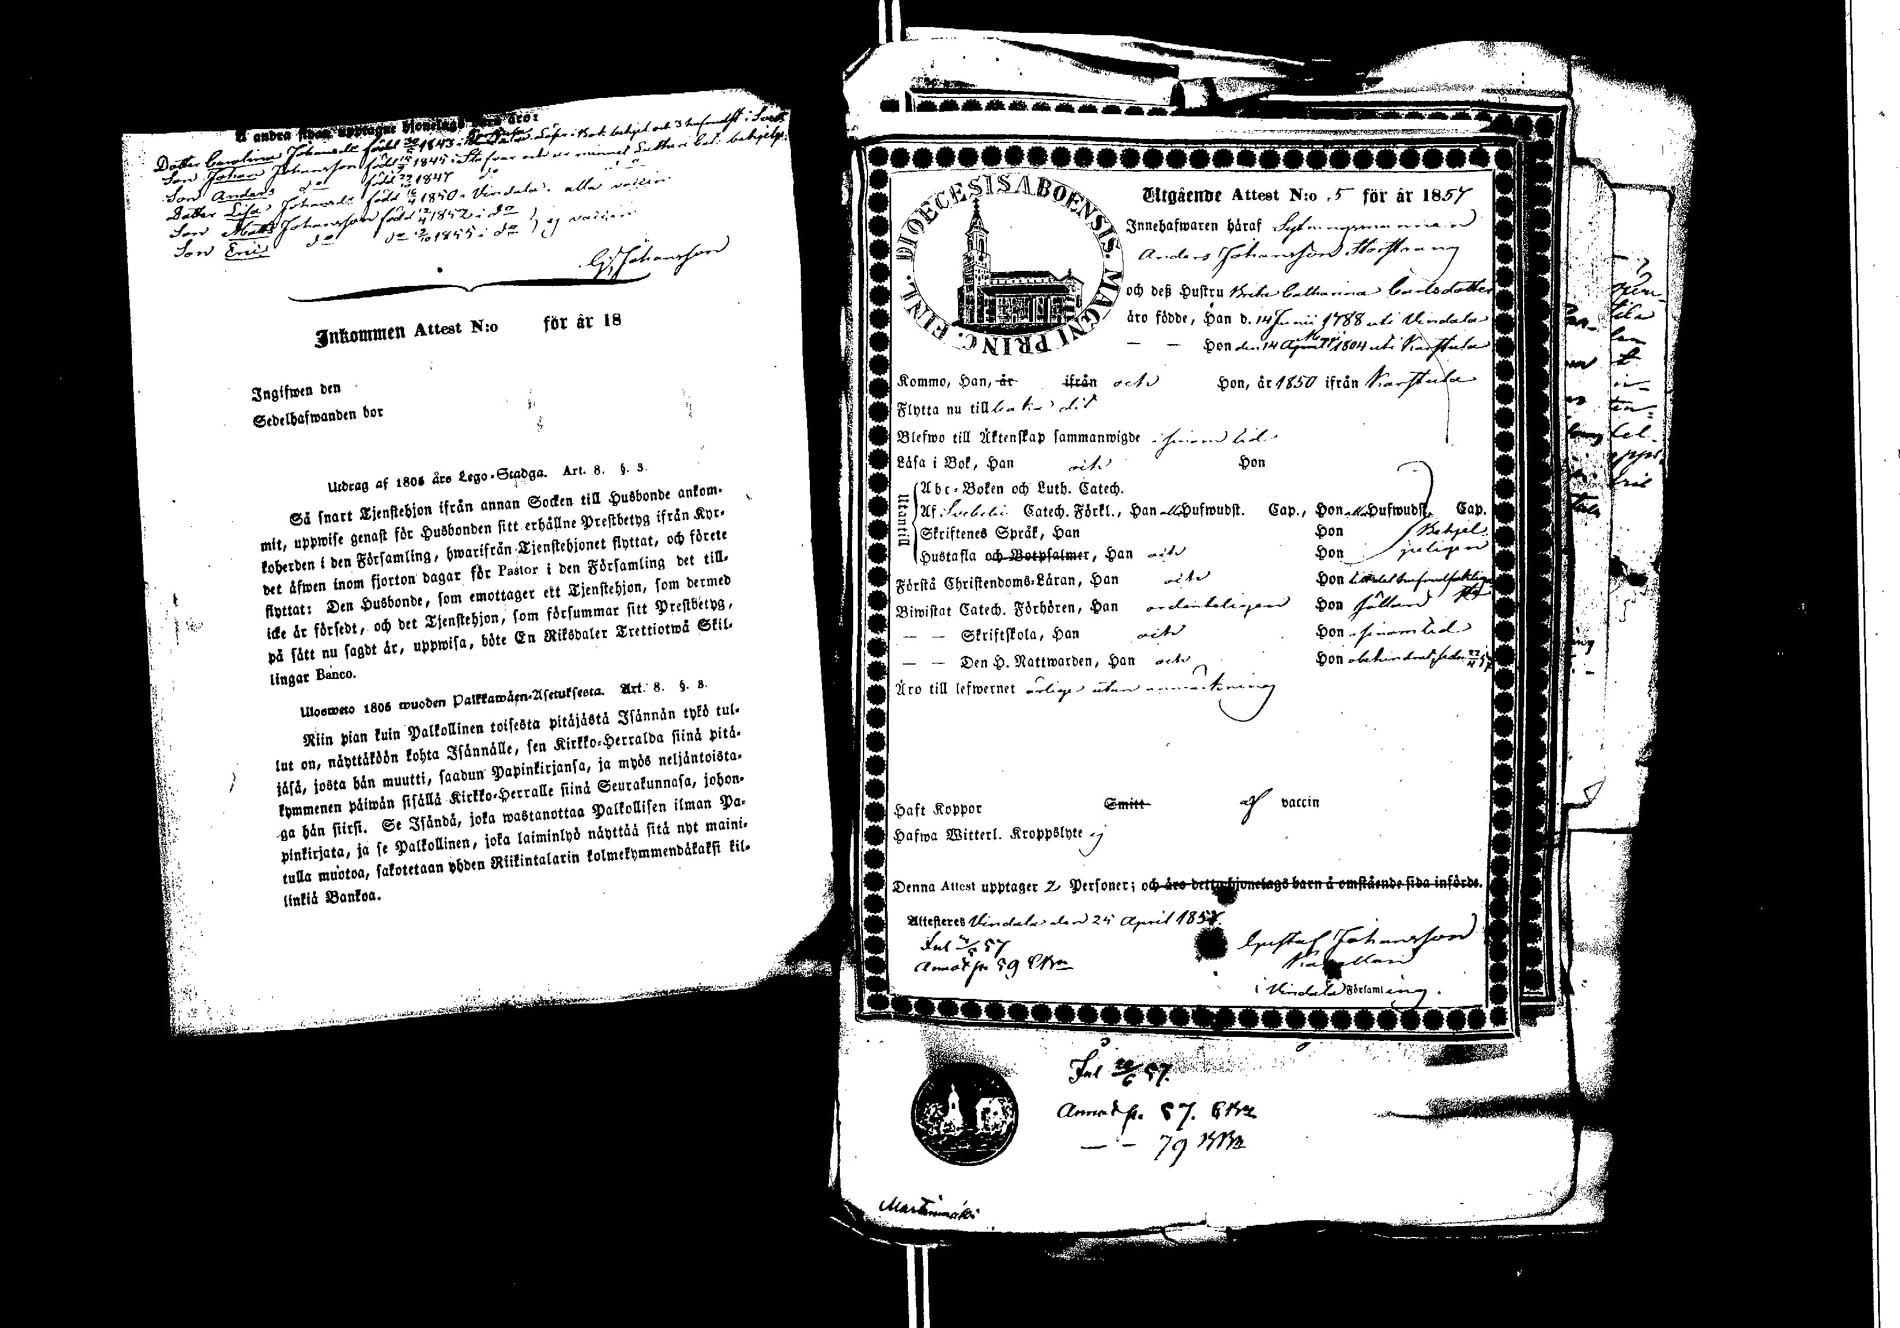 Å andra sidan upptagne hjonelags barn äro:
Dotter Carolina Johansdr född 1843 i Läser i Bok behjel och 3 hufvudst i Sveb
Son Johan Johansson född 1845 i
Son Anders do född 1847 do
Dotter Lisa Johansdr född 1850 i Vindala. alla vaccin
Son Matts Johansson född 1852 i do
Son Eric do do 1855 i do ej vaccin
G Johansson
Inkommen Attest N:o för år 18
Ingifwen den
Sedelhafwanden bor
Utdrag af 1805 års Lego-Stadga. Art. 8. §. 3.
Så snart Tjenstehjon ifrån annan Socken till Husbonde ankom-
mit, uppwise genast för Husbonden sitt erhållne Prestbetyg ifrån Kyr-
koherden i den Församling, hwarifrån Tjenstehjonet flyttat, och förete
det åfwen inom fjorton dagar för Pastor i den Församling det till-
flyttat: Den Husbonde, som emottager ett Tjenstehjon, som dermed
icke är försedt, och det Tjenstehjon, som försummar sitt Prestbetyg,
på sått nu sagdt är, uppwisa, böte En Riksdaler Trettiotwå Skil-
lingar Banco.
Ulosweto 1805 wuoden Palkkawäen-Asetuksesta. Art. 8. §. 3.
Niin pian kuin Palkollinen toisesta pitäjästä Isännän tykö tul-
lut on, näyttäköön kohta Isännälle, sen Kirkko-Herralda siinä pitä-
jäsä, josta hän muutti, saadun Papinkirjansa, ja myös neljäntoista-
kymmenen päiwän sisällä Kirkko-Herralle siinä Seurakunnasa, johon-
ga hän siirsi. Se Isändä, joka wastanottaa Palkollisen ilman Pa-
pinkirjata, ja se Palkollinen, joka laiminlyö näyttää sitä nyt maini-
tulla muotoa, sakotetaan yhden Riikintalarin kolmekymmendäkaksi kil-
linkiä Bankoa.
DIOECESIS ABOENSIS. MAGNI PRINC. FINL.
Utgående Attest N:o 5 för år 1857
Innehafwaren häraf Sytningsmannen
Anders Johansson Storstrang
och deß Hustru Brita Catharina Carlsdotter
äro födde, Han d. 14 Junii 1788 uti Vindala
— — Hon den 14 April 1804 uti Karstula
Kommo, Han, år ifrån och Hon, år 1850 ifrån Karstula
Flytta nu tillbaka dit
Blefwo till Äktenskap sammanwigde i sinom tid
Läsa i Bok, Han och Hon
Utantill
Abc-Boken och Luth. Catech.
Af Svebelii Catech. Förkl., Han alla Hufwudst. Cap., Hon alla Hufwudst. Cap.
Skriftenes Språk, Han Hon Behjel
Hustafla och Botpsalmer, Han och Hon peligen
Förstå Christendoms-Läran, Han och Hon
Biwistat Catech. Förhören, Han ordenteligen Hon sällan
— — Skriftskola, Han och Hon i sinom tid
— — Den H. Nattwarden, Han och Hon obehindrad, sedn 22/4 57
Äro till lefwernet ärlige utan anmärkning
Haft Koppor Smitt af vaccin
Hafwa Witterl. Kroppslyte ej
Denna Attest upptager 2 Personer; och äro detta hjonelags barn å omstående sida införde.
Attesteres Vindala den 25 April 1857.
Gustaf Johansson
Kapellan
i Vindala Församling.
Jul 57
Annot p. 59
Jul 20/6 57.
Annot p. 57.
— — 79
Martinmäki